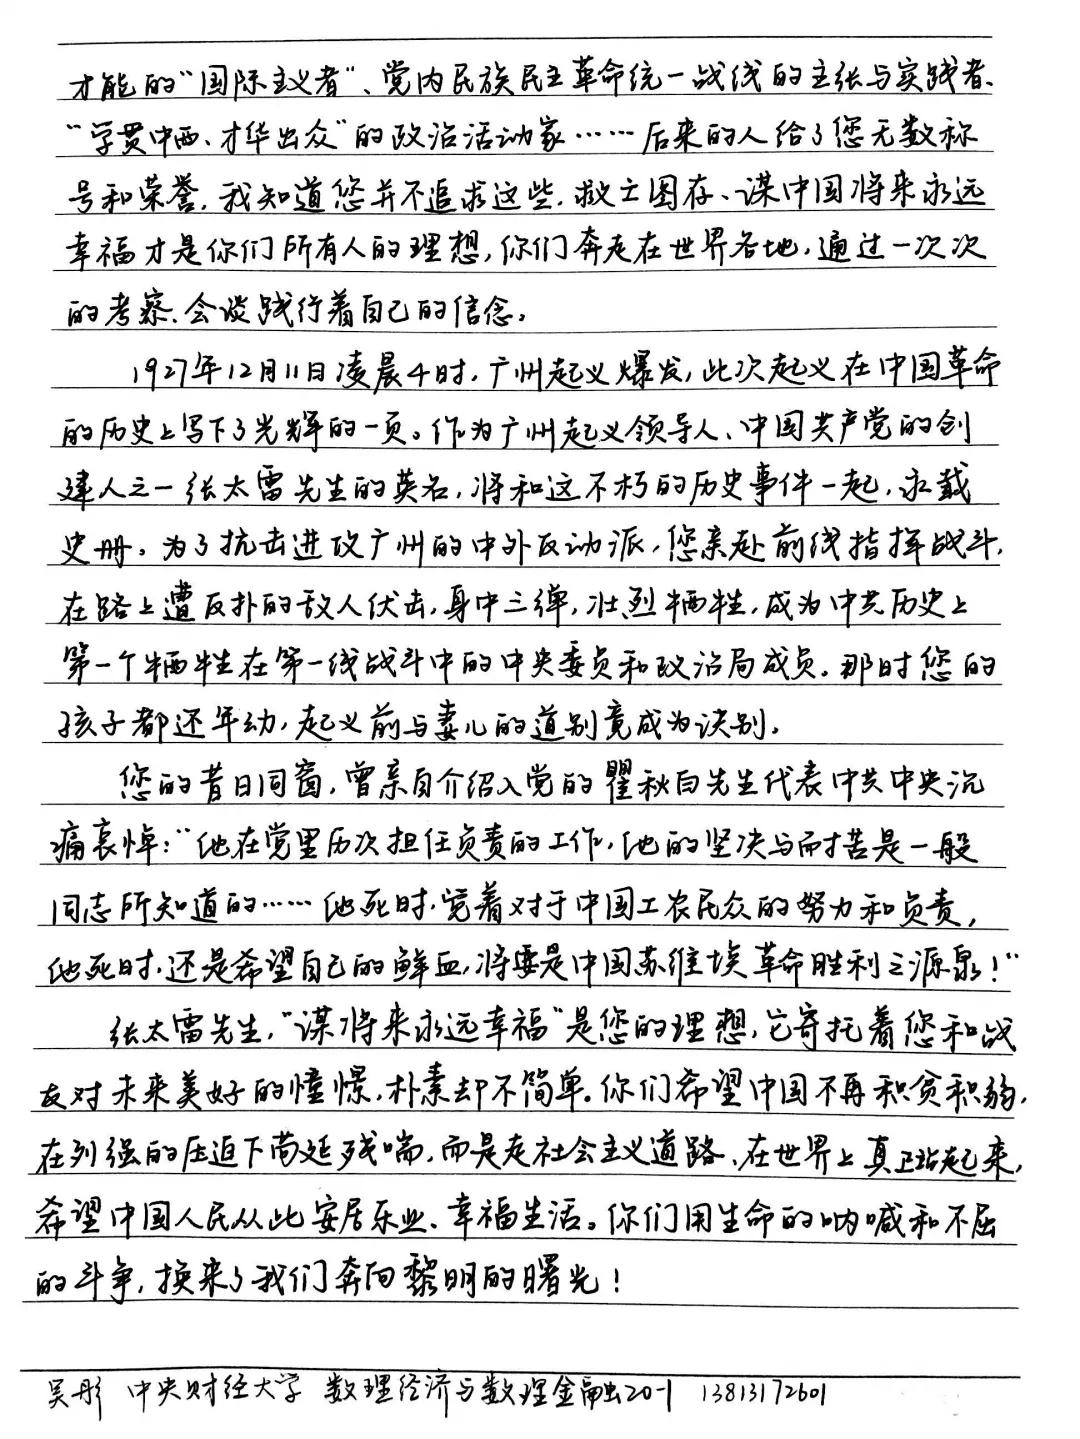 才能的“国际主义者”、党内民族民主革命统一战线的主张与实践者、
“学贯中西、才华出众”的政治活动家……后来的人给了您无数称
号和荣誉，我知道您并不追求这些，救亡图存、谋中国将来永远
幸福才是你们所有人的理想，你们奔走在世界各地，通过一次次
的考察、会谈践行着自己的信念。
1927年12月11日凌晨4时，广州起义爆发，此次起义在中国革命
的历史上写下了光辉的一页。作为广州起义领导人、中国共产党的创
建人之一张太雷先生的英名，将和这不朽的历史事件一起，永载
史册。为了抗击进攻广州的中外反动派，您亲赴前线指挥战斗，
在路上遭反扑的敌人伏击，身中三弹，壮烈牺牲，成为中共历史上
第一个牺牲在第一线战斗中的中央委员和政治局成员。那时您的
孩子都还年幼，起义前与妻儿的道别竟成为诀别。
您的昔日同窗，曾亲自介绍入党的瞿秋白先生代表中共中央沉
痛哀悼：“他在党里历次担任负责的工作，他的坚决与耐苦是一般
同志所知道的……他死时，觉着对于中国工农民众的努力和负责，
他死时，还是希望自己的鲜血，将要是中国苏维埃革命胜利之源泉！”
张太雷先生，“谋将来永远幸福”是您的理想，它寄托着您和战
友对未来美好的憧憬，朴素却不简单。你们希望中国不再积贫积弱，
在列强的压迫下苟延残喘，而是走社会主义道路，在世界上真正站起来，
希望中国人民从此安居乐业、幸福生活。你们用生命的呐喊和不屈
的斗争，换来了我们奔向黎明的曙光！
吴彤 中央财经大学 数理经济与数理金融20-1 13813172601